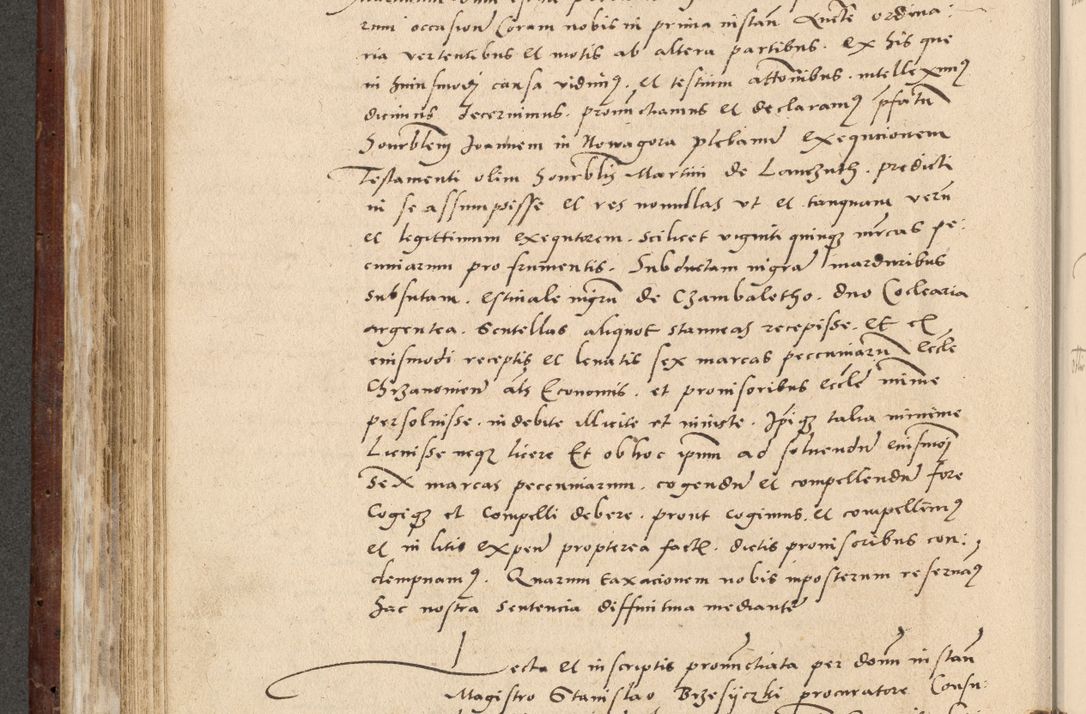 rum occasione Coram nobis in prima instan quete ordina:
ria vertentibus et motis ab altera partibus. ex his que
in huiusmodi causa vidimus. et testium attonibus. intelleximus
dicimus decernimus. pronunctiamus et declaramus pfatum
Honrblem Joannem in Nowagora plebanum exequcionem
Testamenti olim Honrblis Martini de Lanczuth. predicti
in se assumpsisse et res nonnullas vt et tanquam verum
et legittimum exequtorem. Scilicet viginti quinque mrcas pe:
cuniarum pro frumentis. Subductam nigram marduribus
subsutam. estivale nigrum de Czambaletho. duo Coclearia
argentea. Scutellas aliquot stanneas recepisse. Et ex
eiusmodi receptis et levatis sex marcas peccuniarum eccle
Chrzanovien als Economis. et provisoribus eccle minime
persolvisse. indebite illicite et iniuste. Ipique talia minime
Licuisse neque licere Et ob hoc ipum ad solvendum eiusmoi
Sex marcas peccuniarum. cogendum et compellendum fore
Cogique et Compelli debere. prout cogimus. et compellimus
et in litis expen propterea fact. dictis provisoribus con:
dempnamus. Quarum taxacionem nobis inposterum reservamus
hac nostra sentencia diffinitiva mediante
Lecta et in scriptis pronunctiata per donum in stan
Magistro Stanislao Brzesiiczki procuratore Consu: